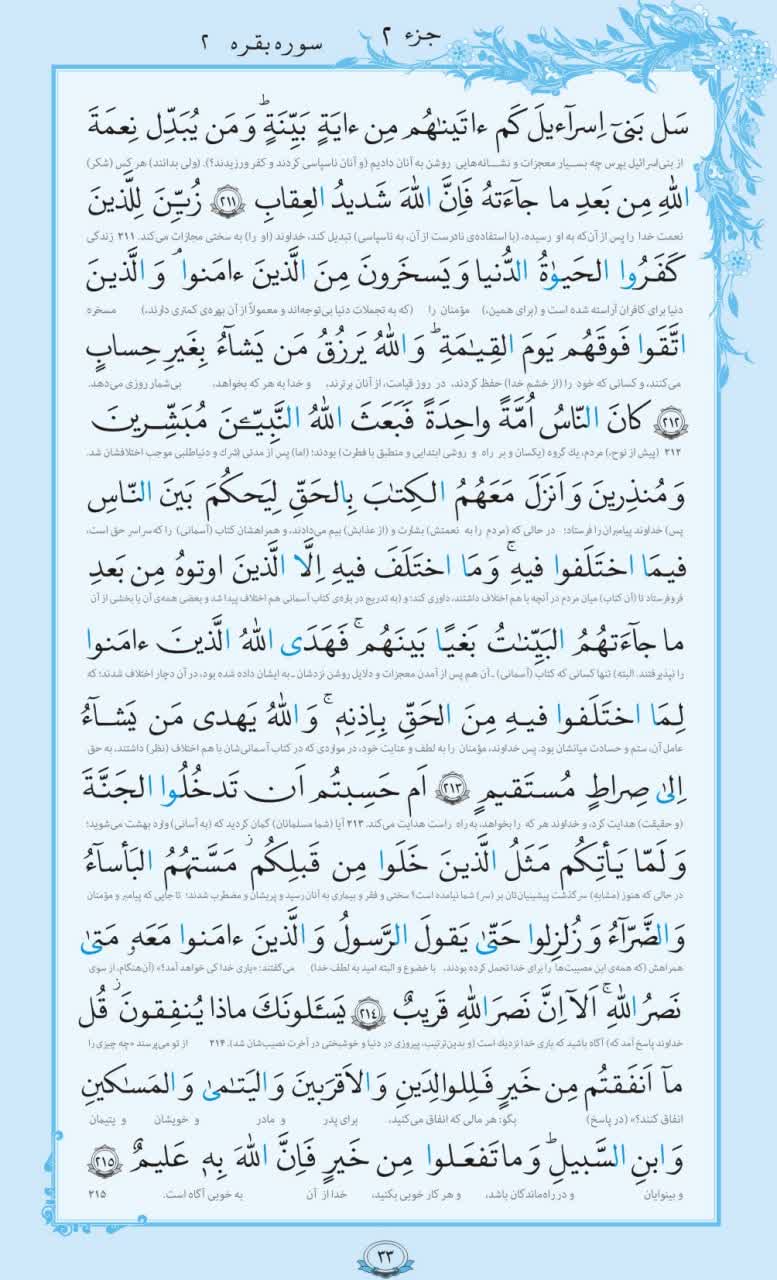 جزء ۲
سوره بقره ۲
سَل بَنیٓ اِسرآءیلَ کَم ءاتَینٰهُم مِن ءایَةٍ بَیِّنَةٍؕ وَ مَن یُبَدِّل نِعمَةَ
از بنی‌اسرائیل بپرس چه بسیار معجزات و نشانه‌هایی روشن به آنان دادیم (و آنان ناسپاسی کردند و کفر ورزیدند؟). (ولی بدانند) هر کس (شکر)
اللهِ مِن بَعدِ ما جآءَتهُ فَاِنَّ اللهَ شَدیدُ العِقابِ ﴿۲۱۱﴾ زُیِّنَ لِلَّذینَ
نعمت خدا را پس از آن‌که به او رسیده، (با استفاده‌ی نادرست از آن، به ناسپاسی) تبدیل کند، خداوند (او را) به سختی مجازات می‌کند. ۲۱۱ زندگی
کَفَرُوا الحَیوٰةُ الدُّنیا وَ یَسخَرونَ مِنَ الَّذینَ ءامَنواۘ وَ الَّذینَ
دنیا برای کافران آراسته شده است و (برای همین،) مؤمنان را (که به تجملات دنیا بی‌توجه‌اند و معمولاً از آن بهره‌ی کمتری دارند،) مسخره
اتَّقَوا فَوقَهُم یَومَ القِیٰمَةِؕ وَ اللهُ یَرزُقُ مَن یَشآءُ بِغَیرِ حِسابٍ
می‌کنند، و کسانی که خود را (از خشم خدا) حفظ کردند، در روز قیامت، از آنان برترند، و خدا به هر که بخواهد، بی‌شمار روزی می‌دهد.
﴿۲۱۲﴾ کانَ النّاسُ اُمَّةً واحِدَةً فَبَعَثَ اللهُ النَّبِیّـٖنَ مُبَشِّرینَ
۲۱۲ (پیش از نوح،) مردم، یک گروه (یکسان و بر راه و روشی ابتدایی و منطبق با فطرت) بودند؛ (اما) پس از مدتی (شرک و دنیاطلبی موجب اختلافشان شد.
وَ مُنذِرینَ وَ اَنزَلَ مَعَهُمُ الکِتٰبَ بِالحَقِّ لِیَحکُمَ بَینَ النّاسِ
پس) خداوند پیامبران را فرستاد؛ در حالی که (مردم را به نعمتش) بشارت و (از عذابش) بیم می‌دادند، و همراهشان کتاب (آسمانی) را که سراسر حق است،
فیمَا اختَلَفوا فیهِۚ وَ مَا اختَلَفَ فیهِ اِلَّا الَّذینَ اوتوهُ مِن بَعدِ
فروفرستاد تا (آن کتاب) میان مردم در آنچه با هم اختلاف داشتند، داوری کند؛ و (به تدریج در باره‌ی کتاب آسمانی هم اختلاف پیدا شد و بعضی همه‌ی آن یا بخشی از آن
ما جآءَتهُمُ البَیِّنٰتُ بَغیًا بَینَهُمۚ فَهَدَی اللهُ الَّذینَ ءامَنوا
را نپذیرفتند. البته) تنها کسانی که کتاب (آسمانی) ـ آن هم پس از آمدن معجزات و دلایل روشن نزدشان ـ به ایشان داده شده بود، در آن دچار اختلاف شدند؛ که
لِمَا اختَلَفوا فیهِ مِنَ الحَقِّ بِاِذنِهٖۚ وَ اللهُ یَهدی مَن یَشآءُ
عامل آن، ستم و حسادت میانشان بود. پس خداوند، مؤمنان را به لطف و عنایت خود، در مواردی که در کتاب آسمانی‌شان با هم اختلاف (نظر) داشتند، به حق
اِلیٰ صِراطٍ مُستَقیمٍ ﴿۲۱۳﴾ اَم حَسِبتُم اَن تَدخُلُوا الجَنَّةَ
(و حقیقت) هدایت کرد، و خداوند هر که را بخواهد، به راه راست هدایت می‌کند. ۲۱۳ آیا (شما مسلمانان) گمان کردید که (به آسانی) وارد بهشت می‌شوید؛
وَ لَمّا یَأتِکُم مَثَلُ الَّذینَ خَلَوا مِن قَبلِکُمۖ مَسَّتهُمُ البَأسآءُ
در حالی که هنوز (مشابه) سرگذشت پیشینیان‌تان بر (سر) شما نیامده است؟ سختی و فقر و بیماری به آنان رسید و پریشان و مضطرب شدند؛ تا جایی که پیامبر و مؤمنان
وَ الضَّرّآءُ وَ زُلزِلوا حَتّیٰ یَقولَ الرَّسولُ وَ الَّذینَ ءامَنوا مَعَهٗ مَتیٰ
همراهش (که همه‌ی این مصیبت‌ها را برای خدا تحمل کرده بودند، با خضوع و البته امید به لطف خدا) می‌گفتند: «یاری خدا کی خواهد آمد؟» (آن‌هنگام، از سوی
نَصرُ اللهِۚ اَلآ اِنَّ نَصرَ اللهِ قَریبٌ ﴿۲۱٤﴾ یَسـَٔلونَکَ ماذا یُنفِقونَۖ قُل
خداوند پاسخ آمد که) آگاه باشید که یاری خدا نزدیک است (و بدین‌ترتیب، پیروزی در دنیا و خوشبختی در آخرت نصیب‌شان شد). ۲۱۴ از تو می‌پرسند «چه چیزی را
مآ اَنفَقتُم مِن خَیرٍ فَلِلوالِدَینِ وَ الاَقرَبینَ وَ الیَتٰمیٰ وَ المَسٰکینِ
انفاق کنند؟» (در پاسخ) بگو: هر مالی که انفاق می‌کنید، برای پدر و مادر و خویشان و یتیمان
وَ ابنِ السَّبیلِؕ وَ ما تَفعَلوا مِن خَیرٍ فَاِنَّ اللهَ بِهٖ عَلیمٌ ﴿۲۱۵﴾
و بینوایان و در راه‌ماندگان باشد، و هر کار خوبی بکنید، خدا از آن به خوبی آگاه است. ۲۱۵
۳۳